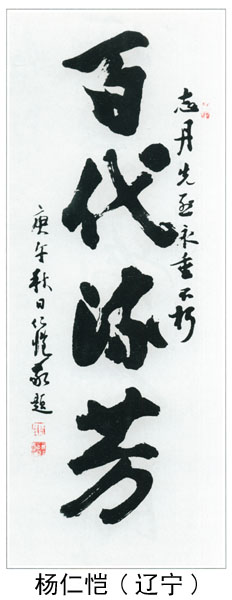 志丹先烈永垂不朽
百代流芳
庚午秋日仁恺敬题
杨仁恺（辽宁）